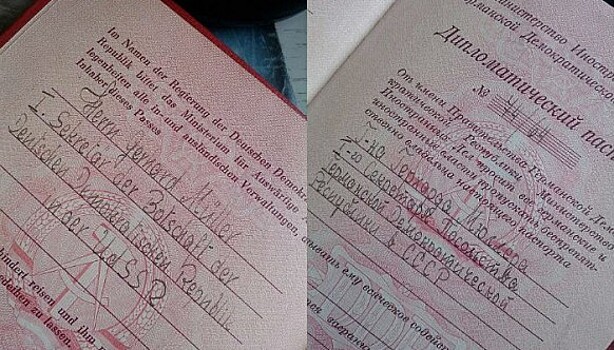 Im Namen der Regierung der Deutschen Demokra
Republik bittet das Ministerium für Auswärtige
legenheiten alle in- und ausländischen Verwaltungen
Inhaber dieses Passes
Herrn Gerhard Müller
I. Sekretär der Botschaft der
Deutschen Demokratischen Republik
in der UdSSR
hindert reisen und ihm
gedeihen zu lassen.
Министерство Иност
Германской Демократическо
Дипломатический пас
№
От имени Правительства Германской Демо
кратической Республики Министерство
Иностранных Дел просит все германские и
иностранные власти пропустить беспрепят-
ственно владельца настоящего паспорта
Г-на Герхарда Мюллера
I-го Секретаря Посольства
Германской Демократической
Республики в СССР
ему всяческое содей